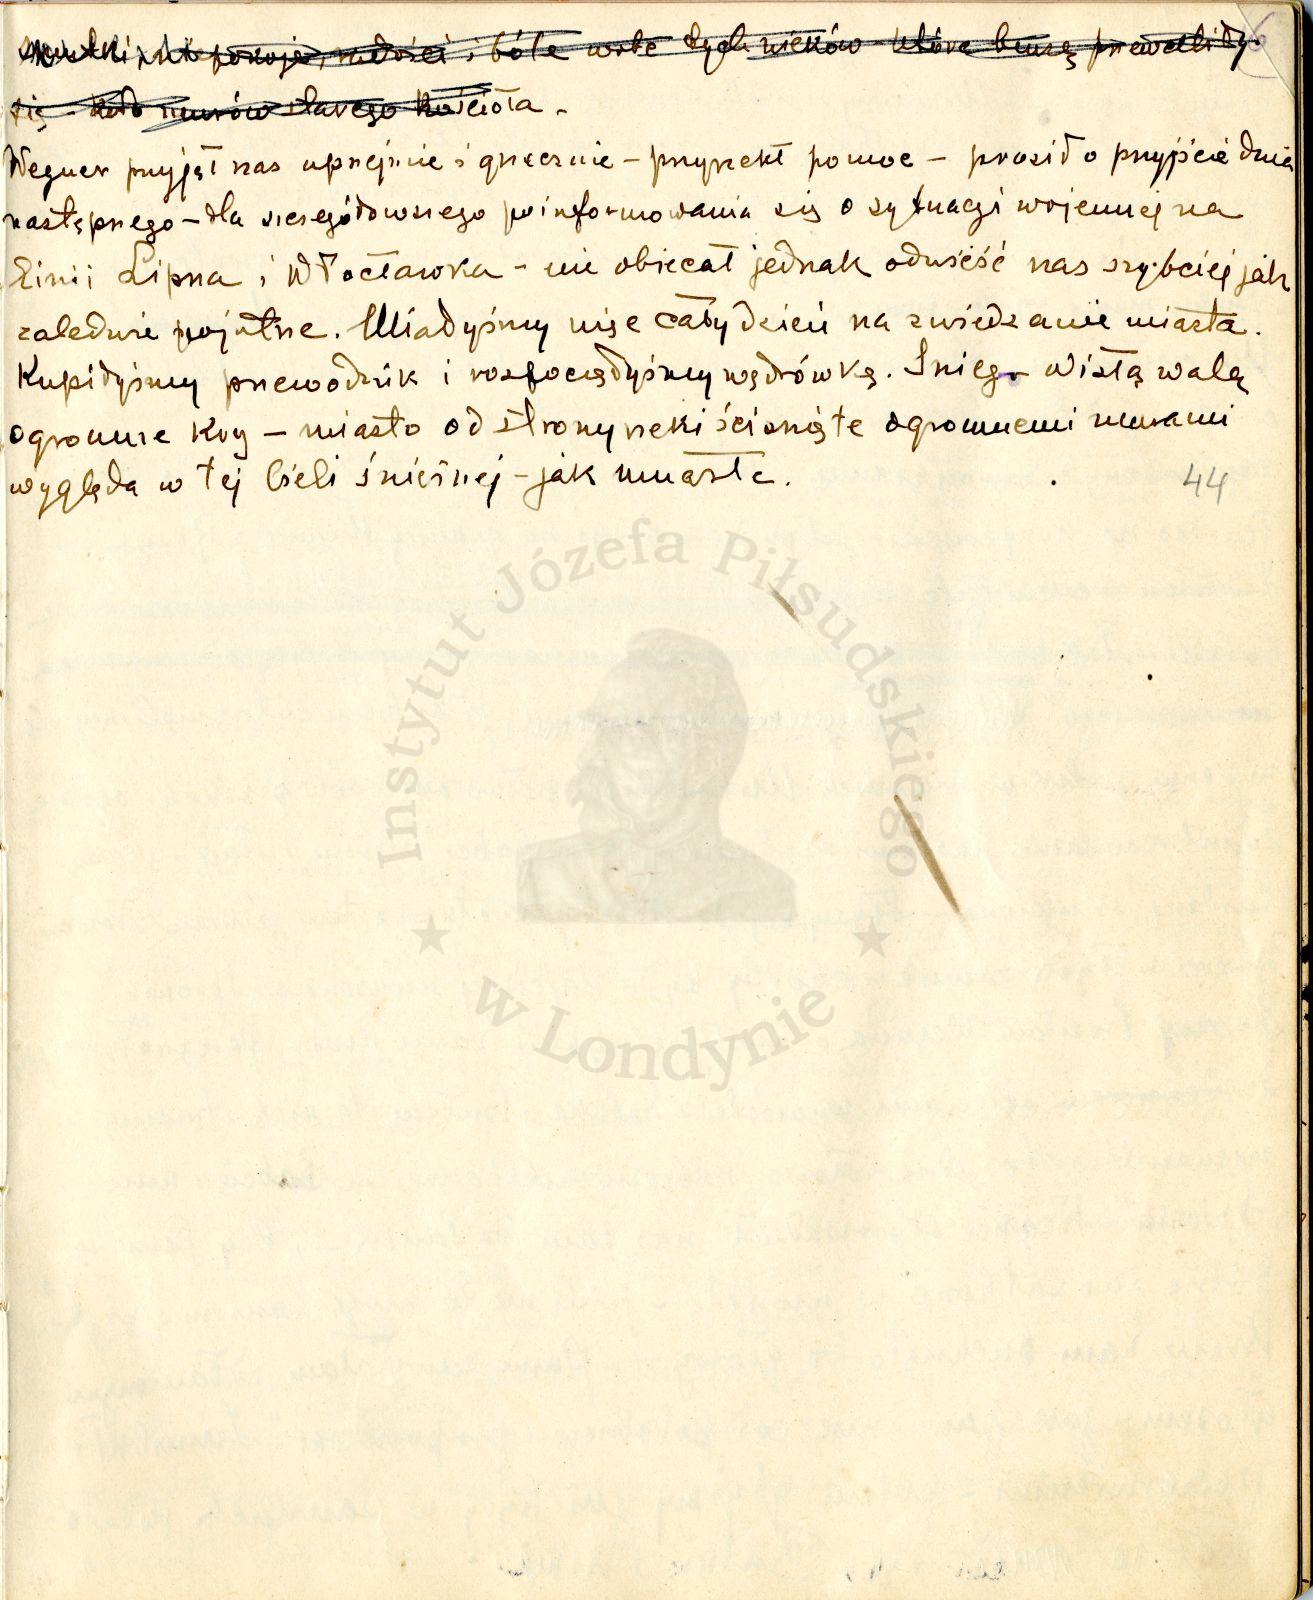 smutki, niepokoje, radości i bóle wske tych wieków które burzą przewaliły
się koło murów starego kościoła -
Wegner przyjął nas uprzejmie i grzecznie - przyrzekł pomoc - prosił o przyjście dnia
następnego - dla szczegółowszego poinformowania się o sytuacji wojennej na
linii Lipna i Włocławka - nie obiecał jednak odwieść nas szybciej jak
zaledwie pojutrze. Mieliśmy więc cały dzień na zwiedzanie miasta.
Kupiliśmy przewodnik i rozpoczęliśmy wędrówkę. Śnieg Wisłą walą
ogromne kry - miasto od strony rzeki ściśnięte ogromnemi murami
wygląda w tej bieli śnieżnej - jak
44
6
Instytut Józefa Piłsudskiego
w Londynie